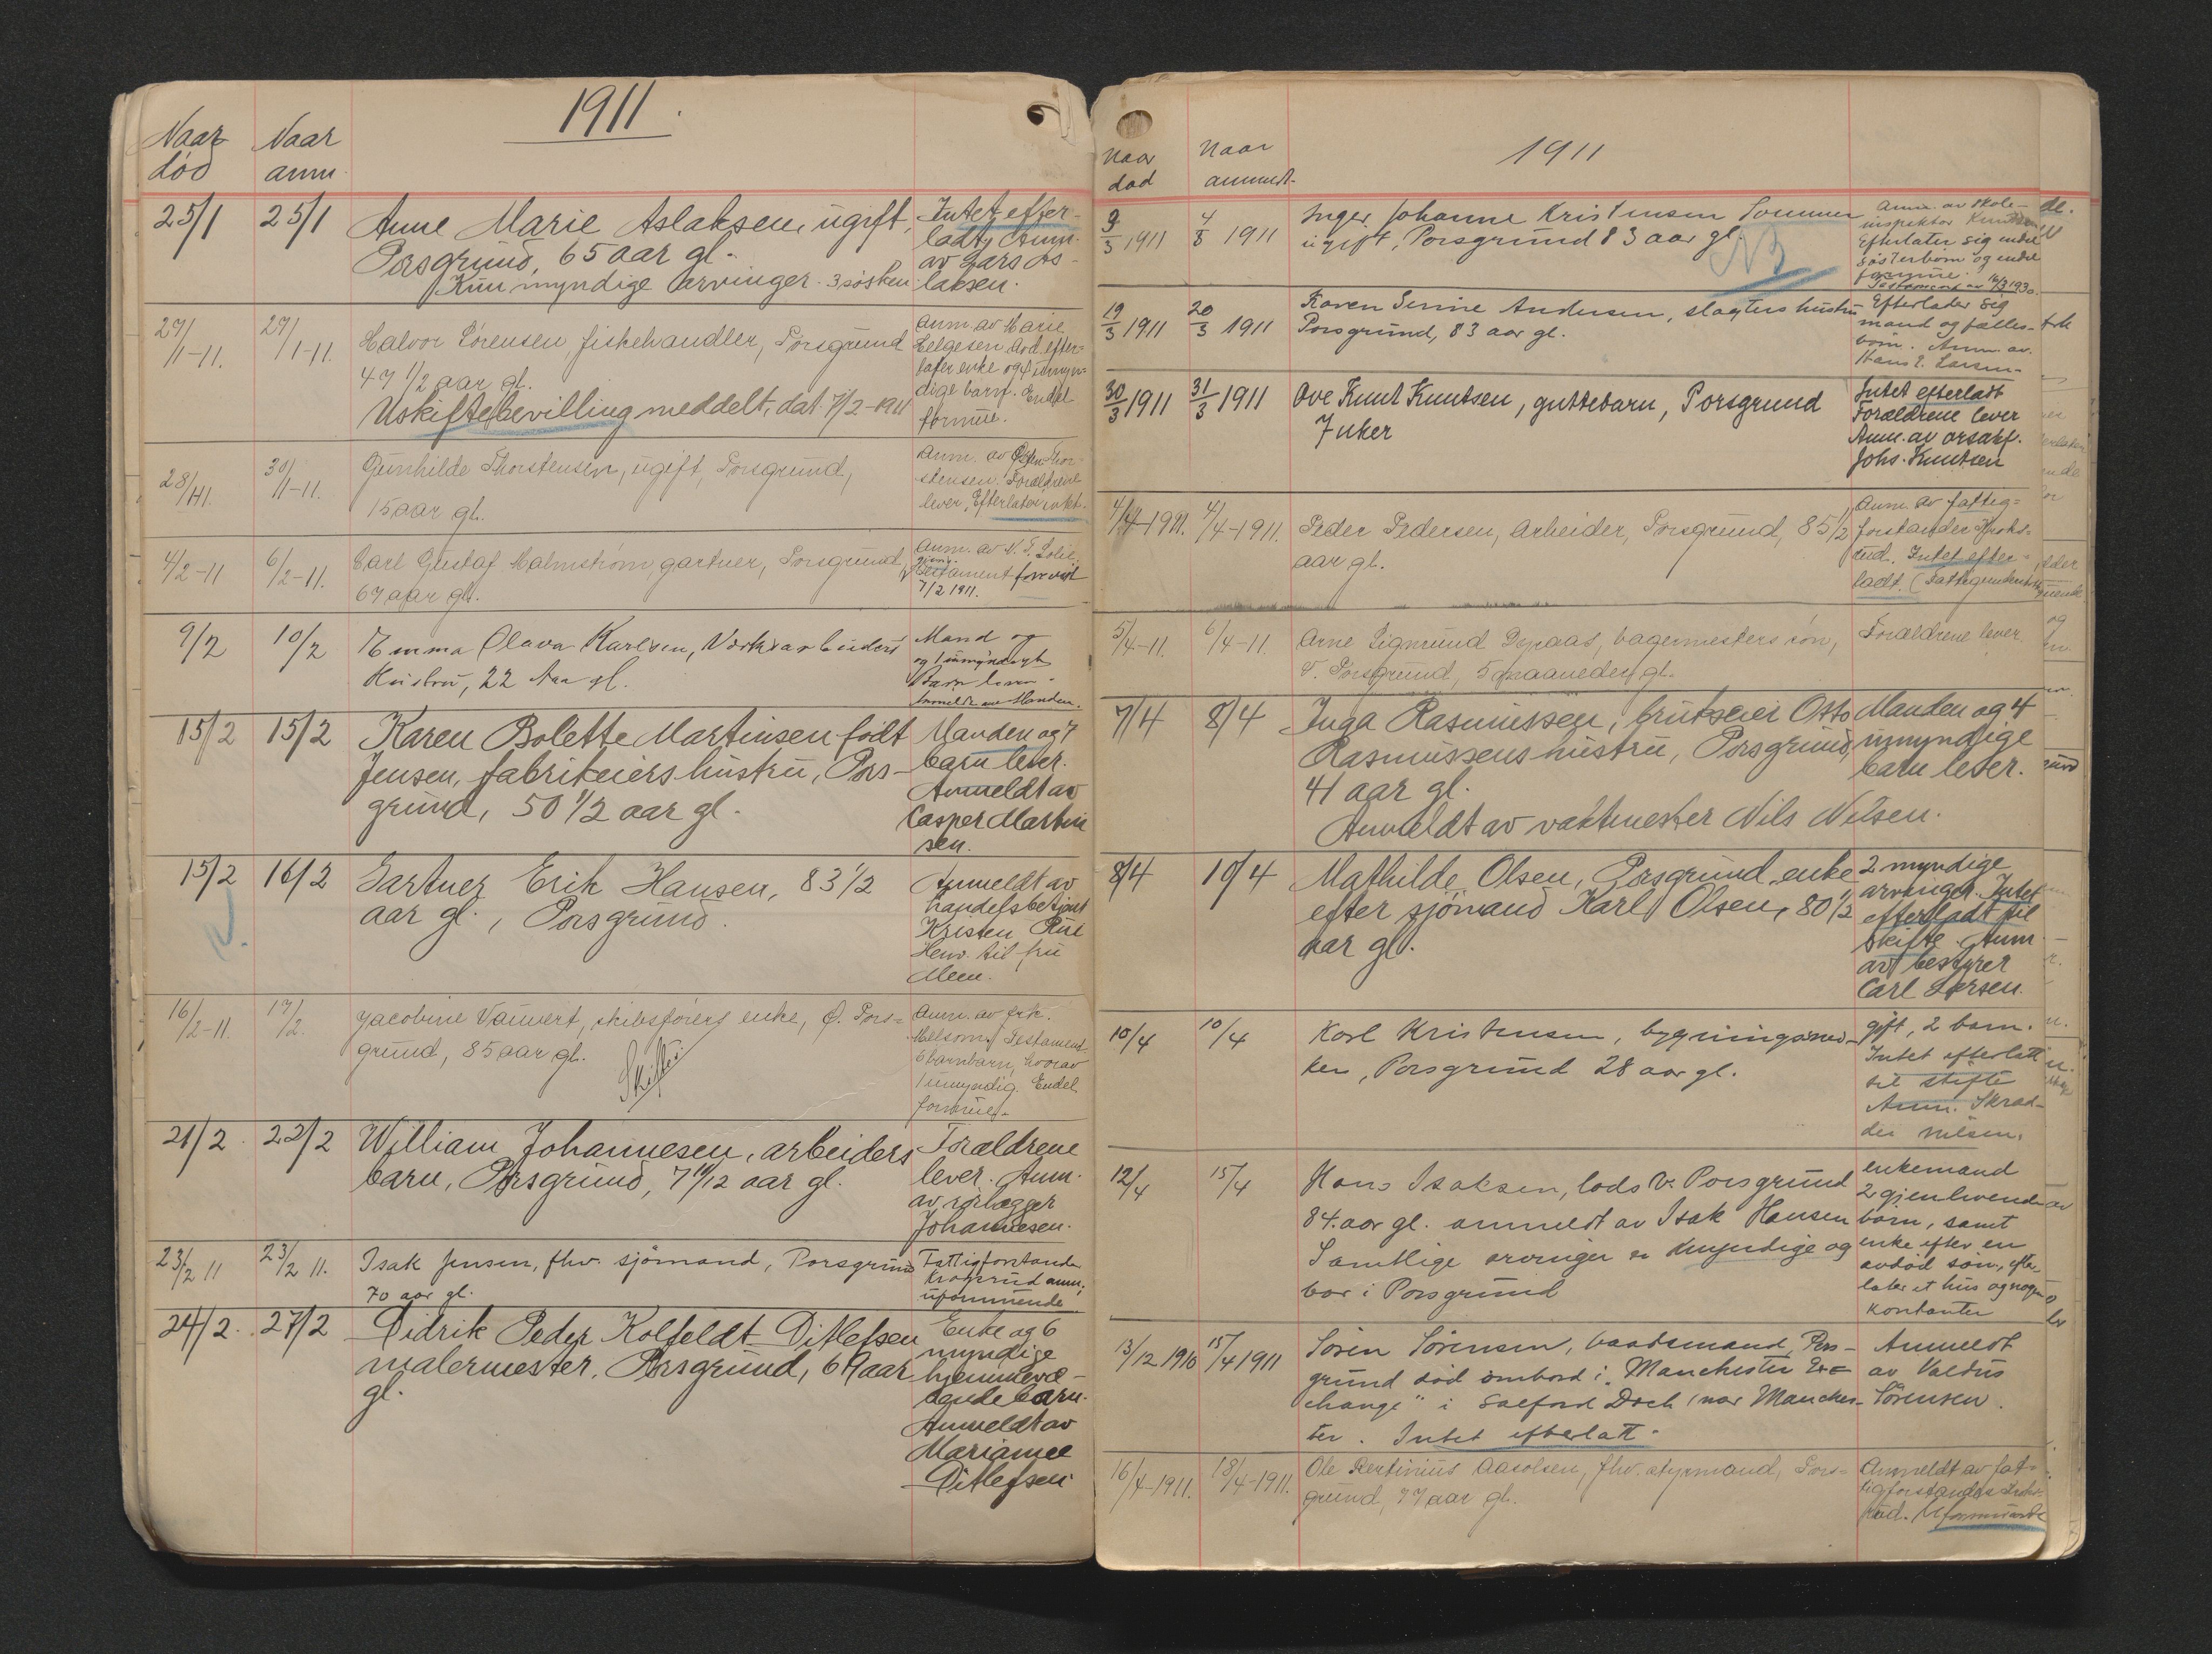 1911.
Naar død
Naar anm.
25/1 25/1 Anne Marie Aslaksen, ugift,
Porsgrund, 65 aar gl.
Kun myndige arvinger - 3 søsken
Intet efter-
ladt, Anm.
av Lars As-
laksen.
27/1-11. 29/1-11. Halvor Sørensen, fiskehandler, Porsgrund
47 1/2 aar gl.
Uskiftebevilling meddelt, dat. 7/2-1911
Anm. av Marie
Helgesen. Avd. efter-
later enke og 4 umyn-
dige barn. Endel
formue.
28/1-11. 30/1-11. Gunhilde Thorstensen, ugift, Porsgrund,
15 aar gl.
Anm. av Thor-
stensen. Forældrene
lever, Efterlater intet.
4/2-11 6/2-11. Carl Gustaf Malmstrøm, gartner, Porsgrund,
67 aar gl.
Anm. av N. T.
Testament forevist
7/2 1911.
9/2 10/2 Emma Olava Karlsen, Verksarbeiders
Hustru, 22 Aar gl.
Mand og
og 1 umyndigt
Barn lever.
Anmeldt av Manden.
15/2 15/2 Karen Bolette Martinsen født
Jensen, fabrikeiers hustru, Pors-
grund, 50 1/2 aar gl.
Manden og 7
barn lever.
Anmeldt av
Casper Martin
sen.
15/2 16/2 Gartner Erik Hansen, 83 1/2
aar gl., Porsgrund.
Anmeldt av
handelsbetjent
Kristen
Henv. til fru
Meen.
16/2-11. 17/2. Jacobine Vauvert, skibsførers enke, Ø. Pors-
grund, 85 aar gl.
Skifte
Anm. av frk.
Melsom. Testament
6 barnbarn, hvorav
1 umyndig. Endel
formue.
21/2. 22/2 William Johannesen, arbeiders
barn, Porsgrund, 7 11/12 aar gl.
Forældrene
lever. Anm.
av rørlægger
Johannesen.
23/2 11 23/2 11. Isak Jensen, fhv. sjömand, Porsgrund
70 aar gl.
Fattigforstander
Krogsrud anm.,
uformuende
24/2. 27/2 Didrik Peder Kolfeldt Ditlefsen
malermester, Porsgrund, 69 aar
gl.
Enke og 6
myndige
hjemmevæ-
rende barn.
Anmeldt av
Marianne
Ditlefsen
1911
Naar død
Naar anmeldt
3/3 1911 4/3 1911 Inger Johanne Kristensen Sommer
ugift, Porsgrund 83 aar gl.
NB
Anm. av skole-
inspektør Knudsen
Efterlater sig endel
søsterbörn og endel
formue.
Testament av
19/3 1911 20/3 1911 Karen Serine Andersen, slagters hustru
Porsgrund, 83 aar gl.
Efterlader sig
mand og fælles-
börn. Anm. av.
Hans E. Larsen
30/3 1911 31/3 1911 Ove Knut Knutsen, guttebarn, Porsgrund
7 uker
Intet efterladt
Forældrene lever
Anm. av orsakf.
Johs. Knutsen
4/4-1911. 4/4-1911. Peder Pedersen, arbeider, Porsgrund, 85 1/2
aar gl.
Anm. av fattig-
forstander Kroks-
rud. Intet efter-
ladt.
5/4-11. 6/4-11. Arne Sigmund bagermesters søn,
V. Porsgrund, 5 maaneder gl.
Forældrene lever
7/4 8/4 Inga Rasmussen, brukseier Otto
Rasmussens hustru, Porsgrund,
41 aar gl.
Anmeldt av vaktmester Nils Nilsen.
Manden og 4
umyndige
barn lever.
8/4 10/4 Mathilde Olsen, Porsgrund, enke
efter sjömand Karl Olsen, 80 1/2
aar gl.
2 myndige
arvinger. Intet
efterladt til
skifte. Anm.
av bestyrer
Carl Larsen.
10/4 10/4 Karl Kristensen, bygningssned-
ker, Porsgrund 28 aar gl.
gift, 2 barn.
Intet efterlatt
til skifte
Anm. Skræd-
der Nilsen.
12/4 15/4 Hans Isaksen, lods V. Porsgrund
84. aar gl. anmeldt av Isak Hansen
Samtlige arvinger er myndige og
bor i Porsgrund
enkemand
2 gjenlevende
börn, samt
enke efter en
avdöd sön, efter-
later et hus og nogen
kontanter
13/12 1910 15/4 1911 Sören Sörensen, baadsmand, Pors-
grund död ombord i "Manchester Ex-
change" i Salford Dock (nær Manches-
ter. Intet efterlatt.
Anmeldt
av Valdus
Sörensen.
16/4-1911. 18/4-1911. Ole Bertinius Aasolsen, fhv. styrmand, Pors-
grund, 77 aar gl.
Anmeldt av fat-
tigforstander Kroks-
rud. Uformuende